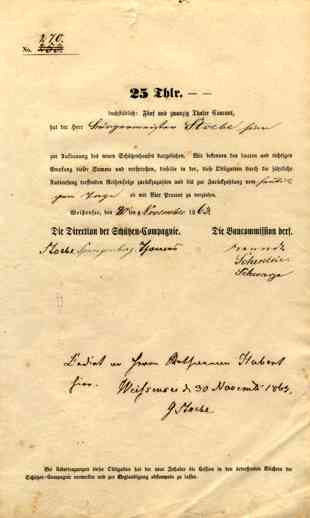 270.
No. 233.
25 Thlr. — —
buchstäblich: Fünf und zwanzig Thaler Courant,
hat der Herr Bürgermeister Stoebe hier
zur Erbauung des neuen Schützenhauses dargeliehen. Wir bekennen den baaren und richtigen
Empfang dieser Summe und versprechen, dieselbe in der, diese Obligation durch die jährliche
Ausloosung treffenden Reihenfolge zurückzuzahlen und bis zur Zurückzahlung vom
Tage ab mit Vier Procent zu verzinsen.
Weißensee, den November 1863.
Die Direction der Schützen-Compagnie.
Die Baucommission ders.
Stoebe
Schwarze
Cedirt an Herrn Hubert
hier.
Weissensee d 30 November 1863.
G Stoebe
Bei Uebertragungen dieser Obligation hat der neue Inhaber die Cession in den betreffenden Büchern der
Schützen-Compagnie vermerken und zur Beglaubigung abstempeln zu lassen.